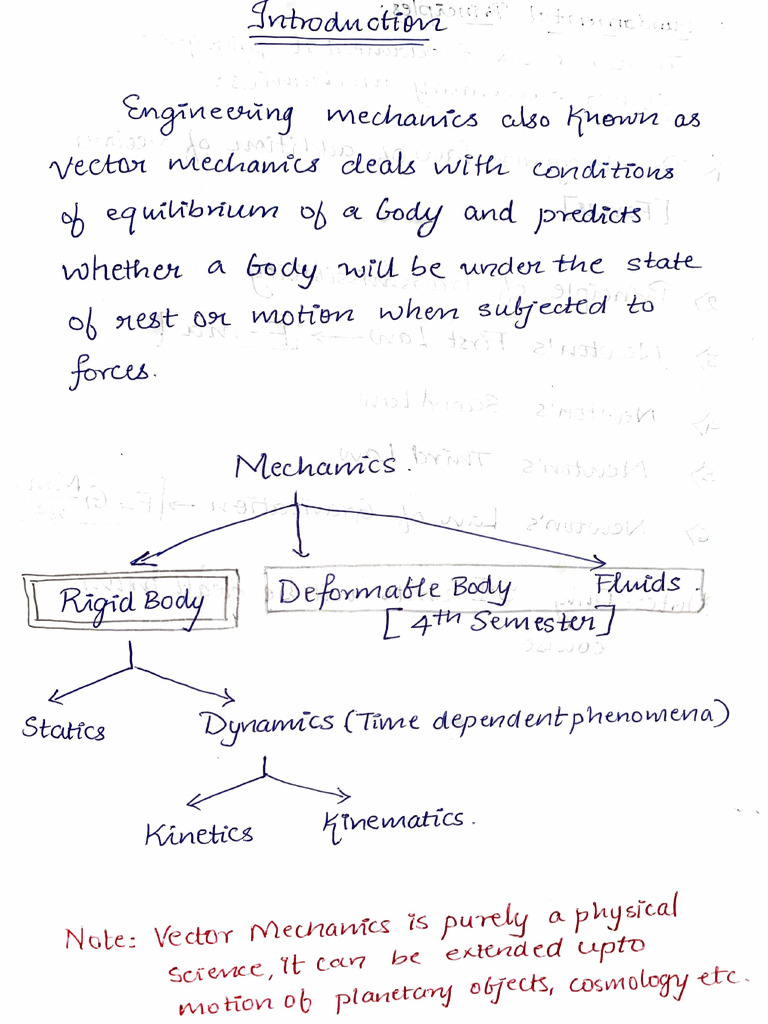 Introduction
Engineering mechanics also known as
vector mechanics deals with conditions
of equilibrium of a body and predicts
whether a body will be under the state
of rest or motion when subjected to
forces.
Mechanics.
Rigid Body
Deformable Body
Fluids.
[4th Semester]
Statics
Dynamics (Time dependent phenomena)
Kinetics
Kinematics.
Note: Vector Mechanics is purely a physical
science, it can be extended upto
motion of planetary objects, cosmology etc.